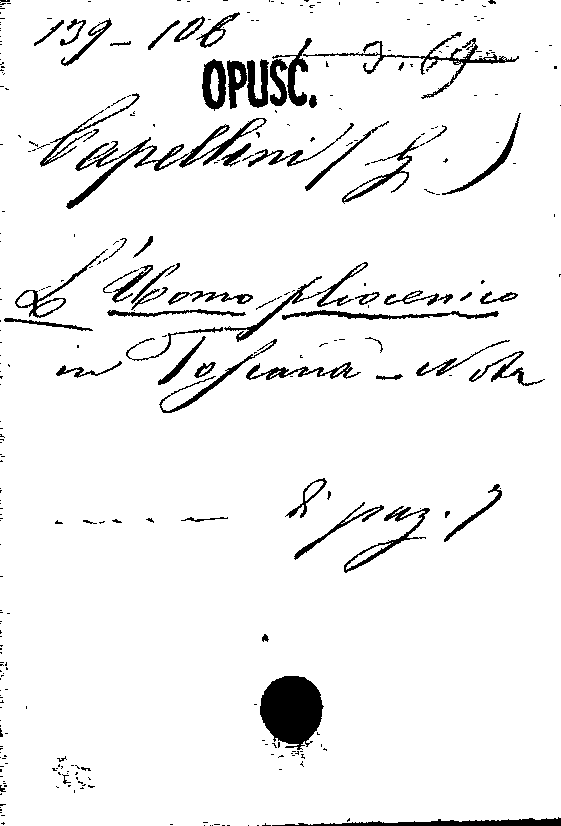 139-106
1. 3. 69
OPUSC.
Capellini (G.)
L'Uomo pliocenico
in Toscana - Nota
..... di pag. 7